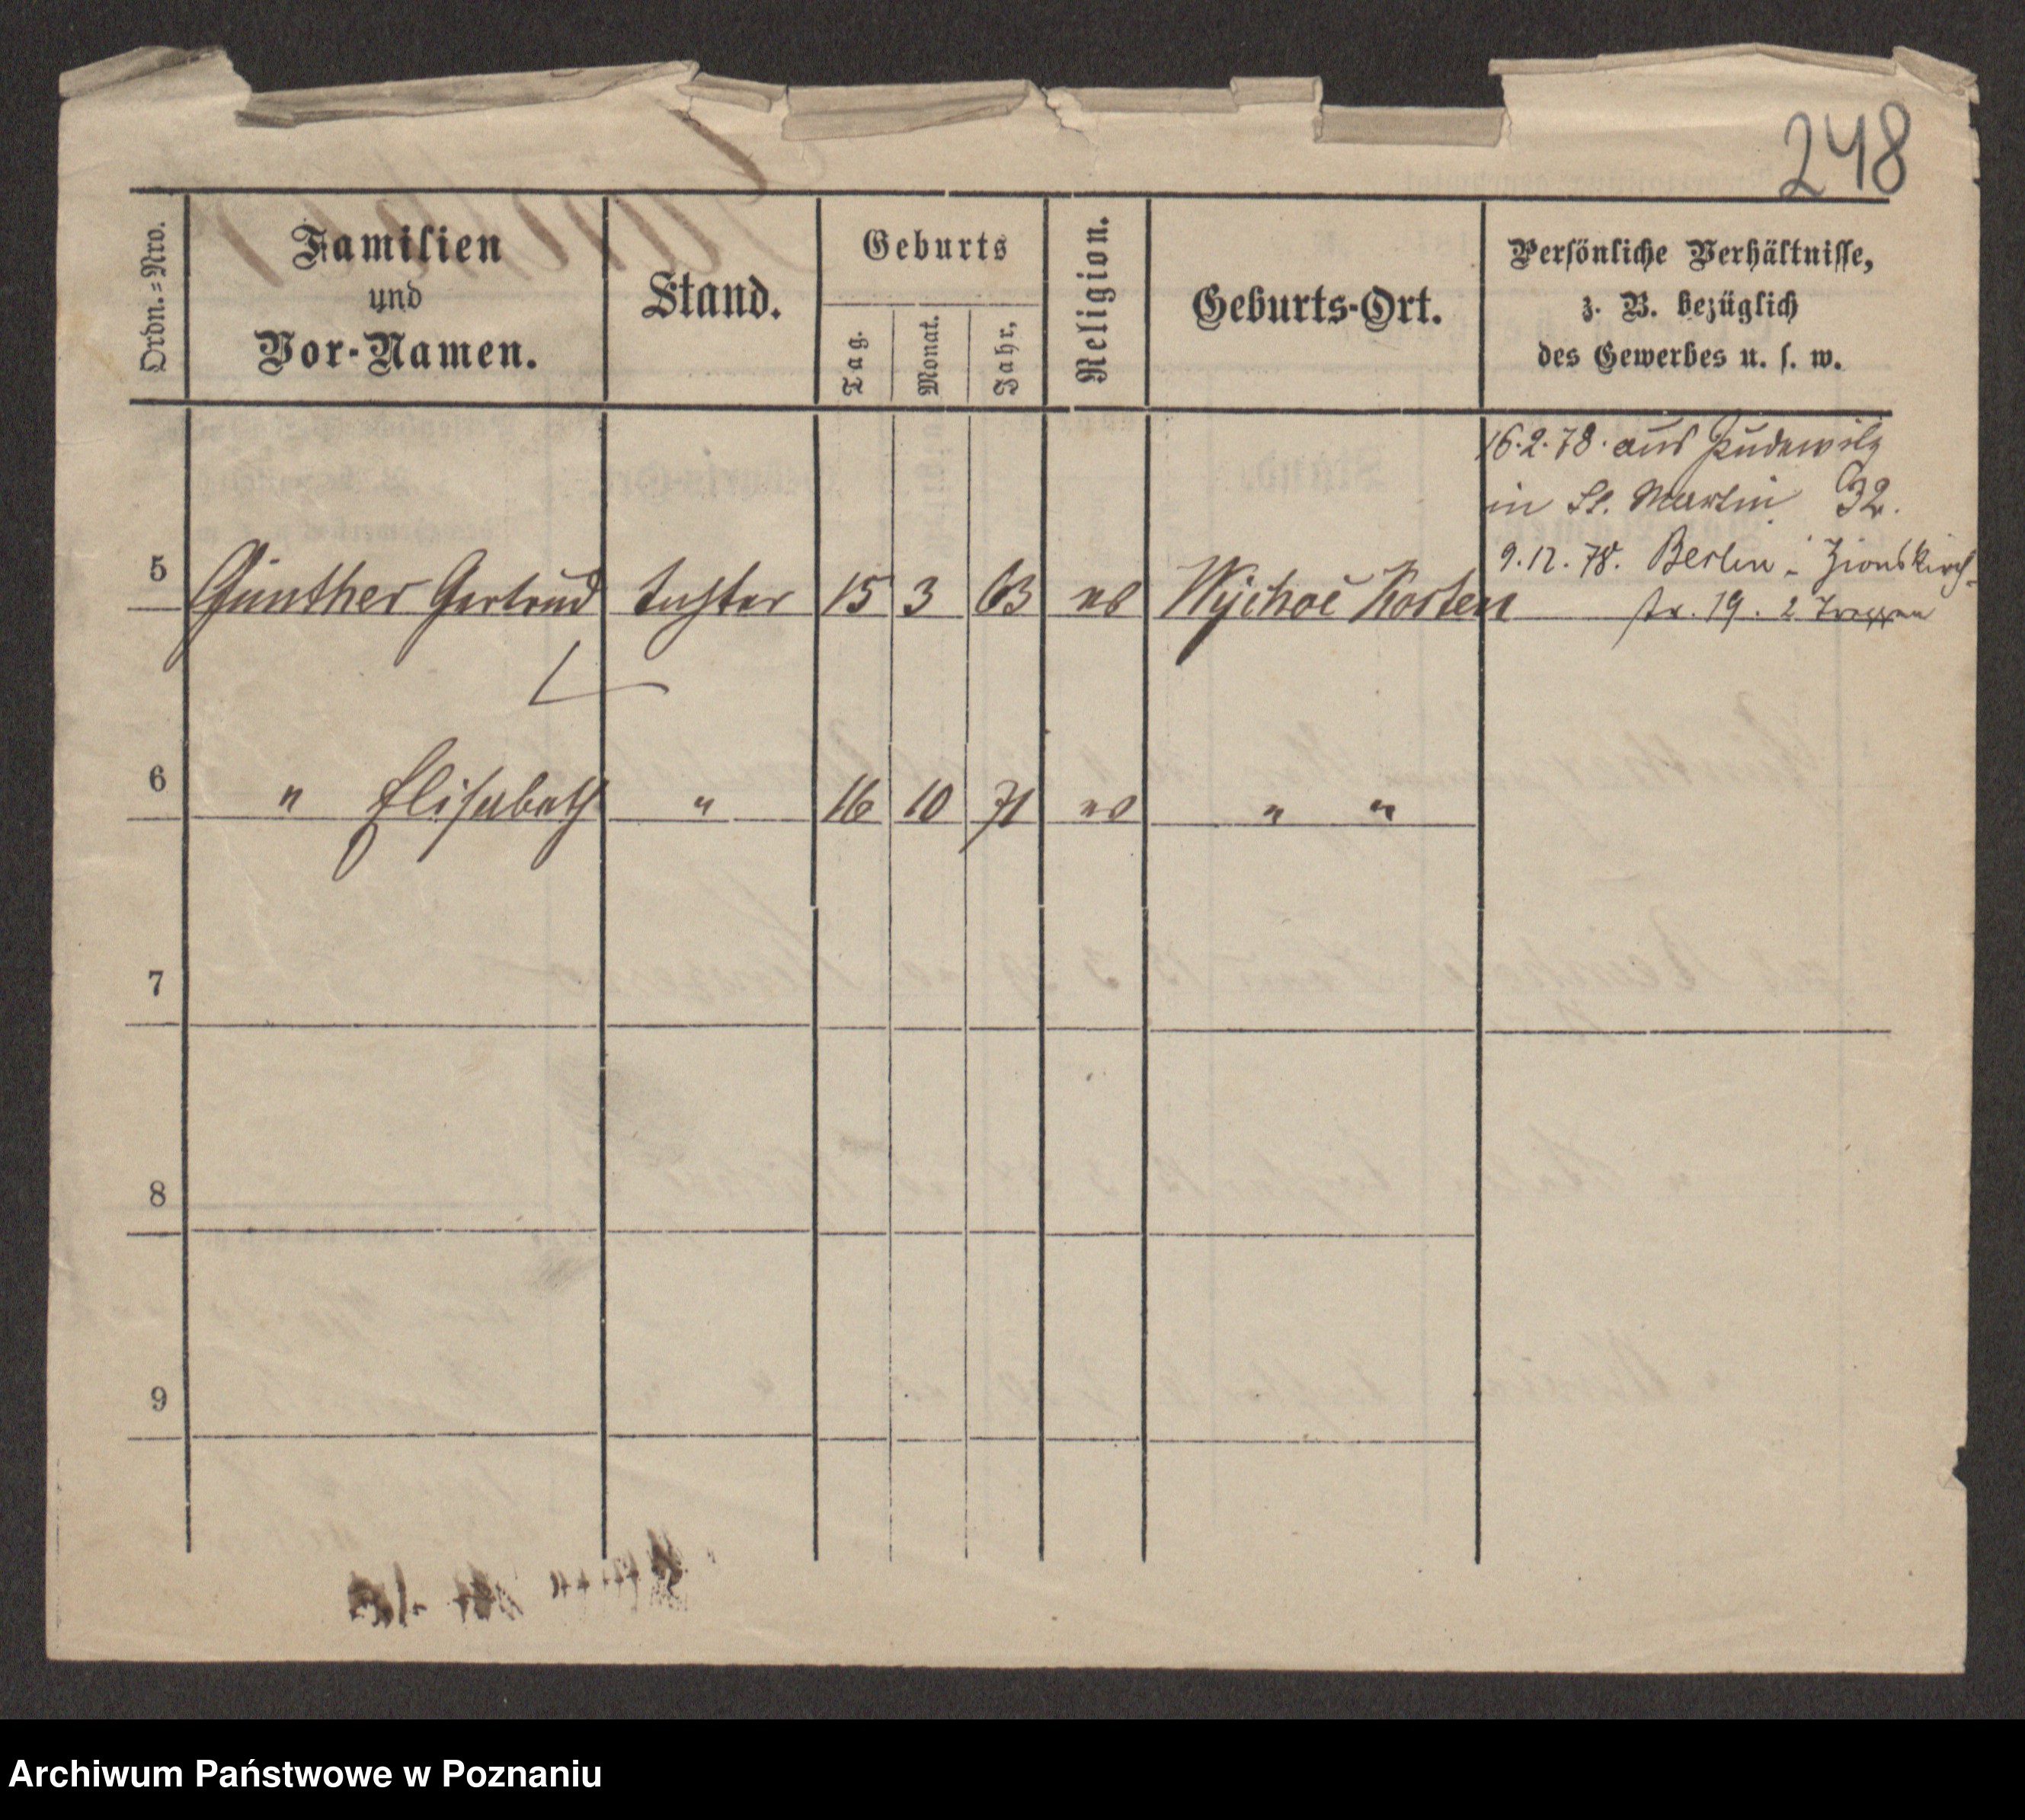 248
Ordn.=Nro.
Familien
und
Vor-Namen.
Stand.
Geburts
Tag.
Monat.
Jahr.
Religion.
Geburts-Ort.
Persönliche Verhältnisse,
z. B. bezüglich
des Gewerbes u. s. w.
16.2.78. aus Pudewitz
in St. Martin 32.
9.12.78. Berlin - Zionskirch-
str. 19. 2 Treppen
5 Günther Gertrud Tochter 15 3 63 ev Kosten
6 " Elisabeth " 16 10 71 ev " "
7
8
9
Archiwum Państwowe w Poznaniu